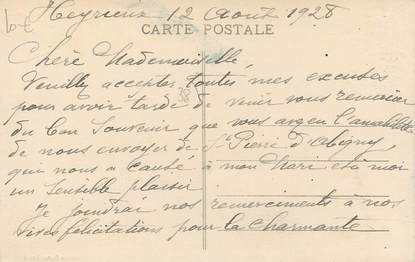 Heyrieux 12 Août 1928
CARTE POSTALE
Chère Mademoiselle,
Veuillez accepter toutes mes excuses
pour avoir tardé de venir vous remercier
du bon souvenir que vous avez eu l'amabilité
de nous envoyer de St Pierre d'Albigny,
qui nous a causé à mon Mari et à moi
un sensible plaisir
Je joindrai nos remerciements à nos
vives félicitations pour la charmante